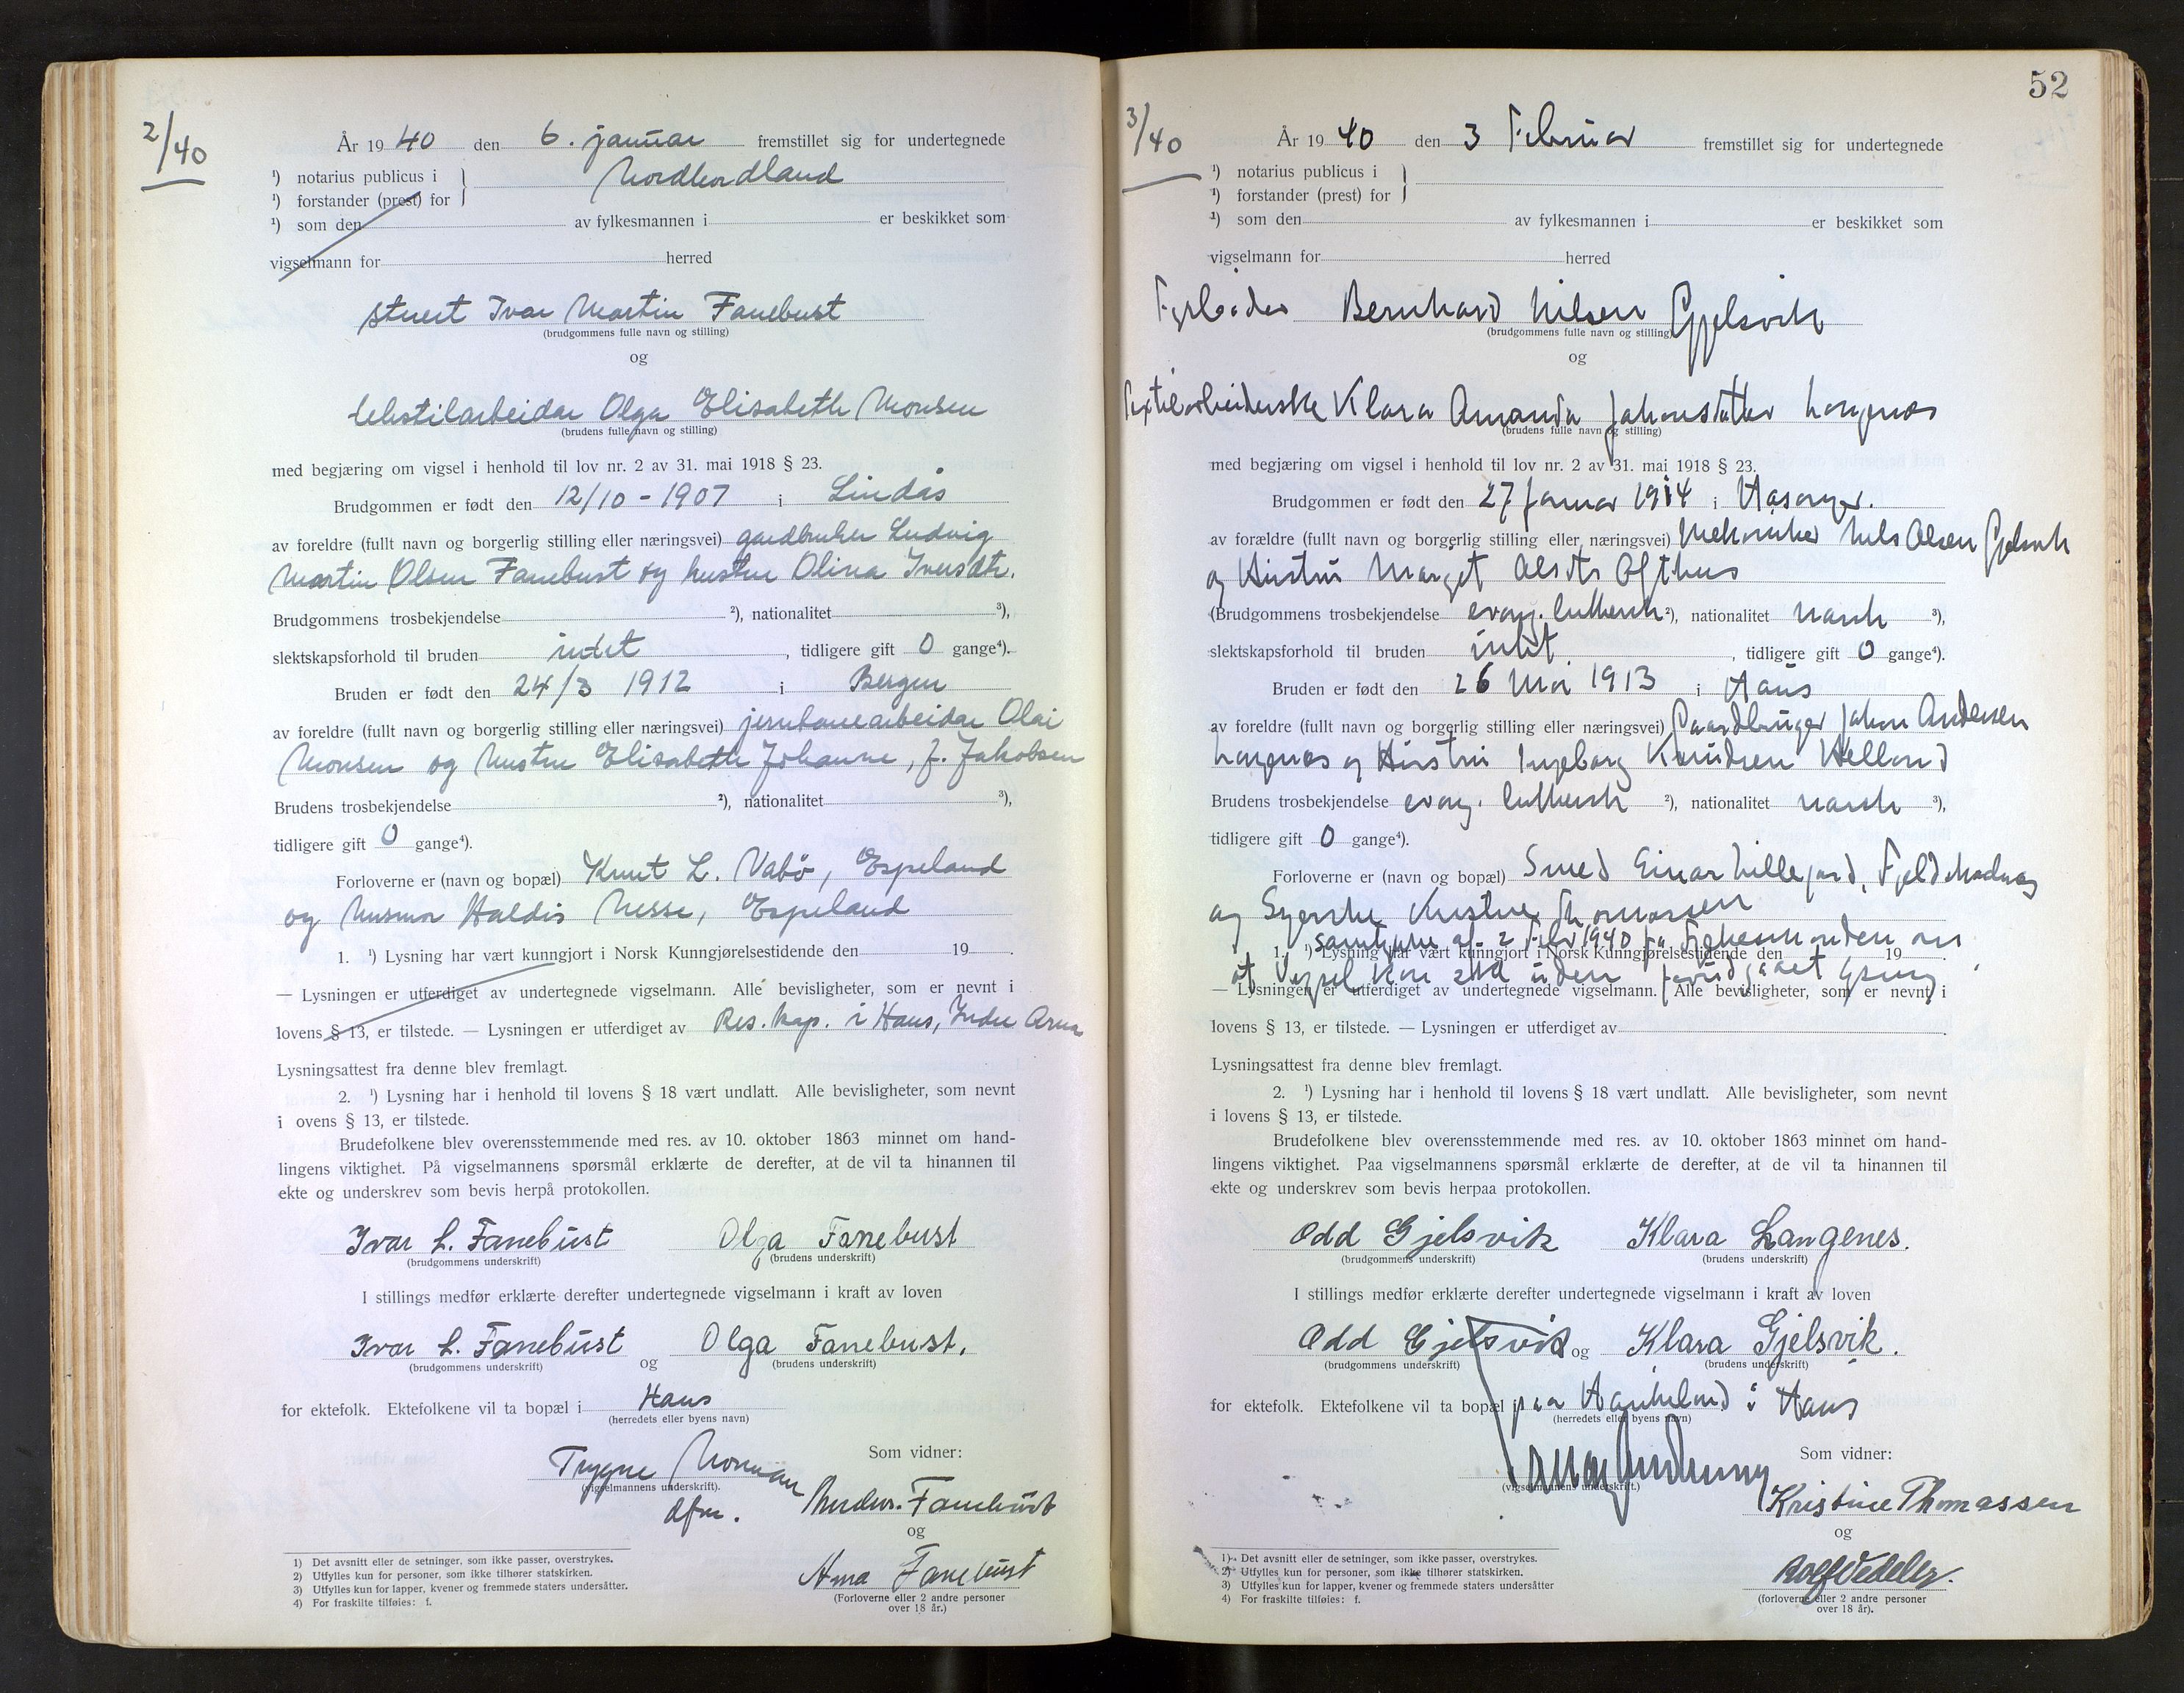 2/40
År 1940 den 6. januar fremstillet sig for undertegnede
¹) notarius publicus i
Nordhordland
¹) forstander (prest) for
¹) som den av fylkesmannen i er beskikket som
vigselmann for herred
stuert Ivar Martin Fanebust
(brudgommens fulle navn og stilling)
og
tekstilarbeidar Olga Elisabeth Monsen
(brudens fulle navn og stilling)
med begjæring om vigsel i henhold til lov nr. 2 av 31. mai 1918 § 23.
Brudgommen er født den 12/10 - 1907 i Lindås
av foreldre (fullt navn og borgerlig stilling eller næringsvei) gardbruker Ludvig
Martin Olsen Fanebust og hustru Olina Iversdtr.
Brudgommens trosbekjendelse ²), nationalitet ³),
slektskapsforhold til bruden intet, tidligere gift 0 gange⁴).
Bruden er født den 24/3 1912 i Bergen
av foreldre (fullt navn og borgerlig stilling eller næringsvei) jernbanearbeidar Olai
Monsen og hustru Elisabeth Johanne, f. Jakobsen
Brudens trosbekjendelse ²), nationalitet ³),
tidligere gift 0 gange⁴).
Forloverne er (navn og bopæl) Knut L. Vabø, Espeland
og husmor Haldis Nesse, Espeland
1. ¹) Lysning har vært kunngjort i Norsk Kunngjørelsestidende den 19 .
— Lysningen er utferdiget av undertegnede vigselmann. Alle bevisligheter, som er nevnt i
lovens § 13, er tilstede. — Lysningen er utferdiget av Res. kap. i Haus, Indre Arna
Lysningsattest fra denne blev fremlagt.
2. ¹) Lysning har i henhold til lovens § 18 vært undlatt. Alle bevisligheter, som nevnt
i ovens § 13, er tilstede.
Brudefolkene blev overensstemmende med res. av 10. oktober 1863 minnet om hand-
lingens viktighet. På vigselmannens spørsmål erklærte de derefter, at de vil ta hinannen til
ekte og underskrev som bevis herpå protokollen.
Ivar L. Fanebust Olga Fanebust
(brudgommens underskrift) (brudens underskrift)
I stillings medfør erklærte derefter undertegnede vigselmann i kraft av loven
Ivar L. Fanebust og Olga Fanebust.
(brudgommens underskrift) (brudens underskrift)
for ektefolk. Ektefolkene vil ta bopæl i Haus
(herredets eller byens navn)
Som vidner:
Trygve Norman
(vigselmannens underskrift).
dfm.
Fanebust
og
Anna Fanebust
(Forloverne eller 2 andre personer
over 18 år.)
1) Det avsnitt eller de setninger, som ikke passer, overstrykes.
2) Utfylles kun for personer, som ikke tilhører statskirken.
3) Utfylles kun for lapper, kvener og fremmede staters undersåtter.
4) For fraskilte tilføies: f.
52
3/40
År 1940 den 3 Februar fremstillet sig for undertegnede
¹) notarius publicus i
¹) forstander (prest) for
¹) som den av fylkesmannen i er beskikket som
vigselmann for herred
Fyrbøder Bernhard Nilsen Gjelsvik
(brudgommens fulle navn og stilling)
og
Textilarbeiderske Klara Amanda Johansdatter Langenes
(brudens fulle navn og stilling)
med begjæring om vigsel i henhold til lov nr. 2 av 31. mai 1918 § 23.
Brudgommen er født den 27 Januar 1914 i Hasanger.
av forældre (fullt navn og borgerlig stilling eller næringsvei) Mekaniker Nils Olsen Gjelsvik
og Hustru Marget Olsdtr Ofthus
(Brudgommens trosbekjendelse evang. luthersk ²), nationalitet norsk ³),
slektskapsforhold til bruden intet, tidligere gift 0 gange⁴).
Bruden er født den 26 Mai 1913 i Haus
av foreldre (fullt navn og borgerlig stilling eller næringsvei) Gaardbruger Johan Andersen
Langenes og Hustru Ingeborg Knudsen Helland
Brudens trosbekjendelse evang. luthersk ²), nationalitet norsk ³),
tidligere gift 0 gange⁴).
Forloverne er (navn og bopæl) Smed Einar Lillejord,
og Syerske Kristine Thomassen
samtykke af 2 Febr 1940 fra Fylkesmanden om
1. ¹) Lysning har vært kunngjort i Norsk Kunngjørelsestidende den 19 .
at Vigsel kan skd uden forudgaaet lysning
— Lysningen er utferdiget av undertegnede vigselmann. Alle bevisligheter, som er nevnt i
lovens § 13, er tilstede. — Lysningen er utferdiget av
Lysningsattest fra denne blev fremlagt.
2. ¹) Lysning har i henhold til lovens § 18 vært undlatt. Alle bevisligheter, som nevnt
i lovens § 13, er tilstede.
Brudefolkene blev overensstemmende med res. av 10. oktober 1863 minnet om hand-
lingens viktighet. Paa vigselmannens spørsmål erklærte de derefter, at de vil ta hinannen til
ekte og underskrev som bevis herpaa protokollen.
Odd Gjelsvik Klara Langenes.
(brudgommens underskrift) (brudens underskrift)
I stillings medfør erklærte derefter undertegnede vigselmann i kraft av loven
Odd Gjelsvik og Klara Gjelsvik.
(brudgommens underskrift) (brudens underskrift)
for ektefolk. Ektefolkene vil ta bopæl i paa Haukeland i Haus
(herredets eller byens navn)
Som vidner:
(vigselmannens underskrift.)
Kristine Thomassen
og
Rolf Vedeler.
(forloverne eller 2 andre personer
over 18 år).
1) Det avsnitt eller de setninger, som ikke passer, overstrykes.
2) Utfylles kun for personer, som ikke tilhører statskirken.
3) Utfylles kun for lapper, kvener og fremmede staters undersåtter
4) For fraskilte tilføies: f.